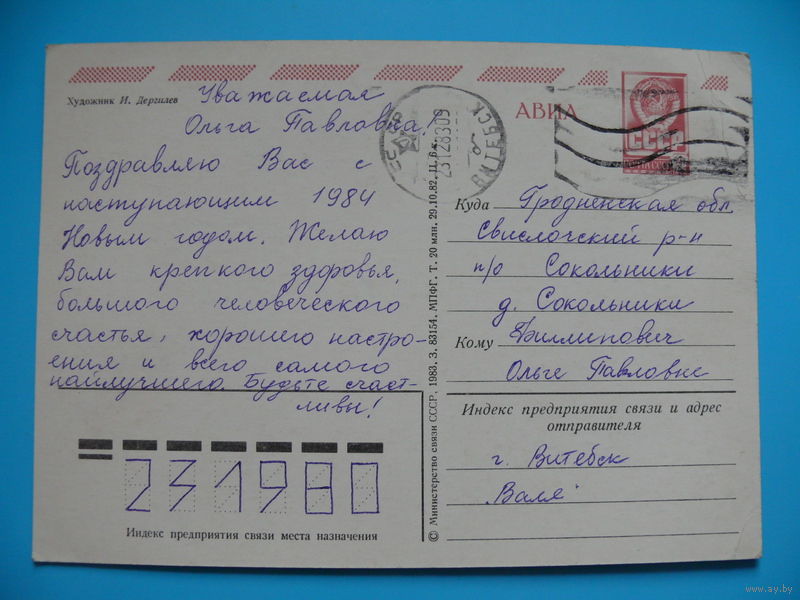 Художник И. Дергилев
Уважаемая
Ольга Павловна!
Поздравляю Вас с
наступающим 1984
Новым годом. Желаю
Вам крепкого здоровья,
большого человеческого
счастья, хорошего настро-
ения и всего самого
наилучшего. Будьте счаст-
ливы!
231980
Индекс предприятия связи места назначения
© Министерство связи СССР, 1983. З. 83154. МПФГ. Т. 20 млн. 29.10.82. Ц. 6 к.
ВИТЕБСК
АВИА
СССР
Куда Гродненская обл.
Свислочский р-н
п/о Сокольники
д. Сокольники
Кому Филиппович
Ольге Павловне
Индекс предприятия связи и адрес
отправителя
г. Витебск
Валя
www.ay.by